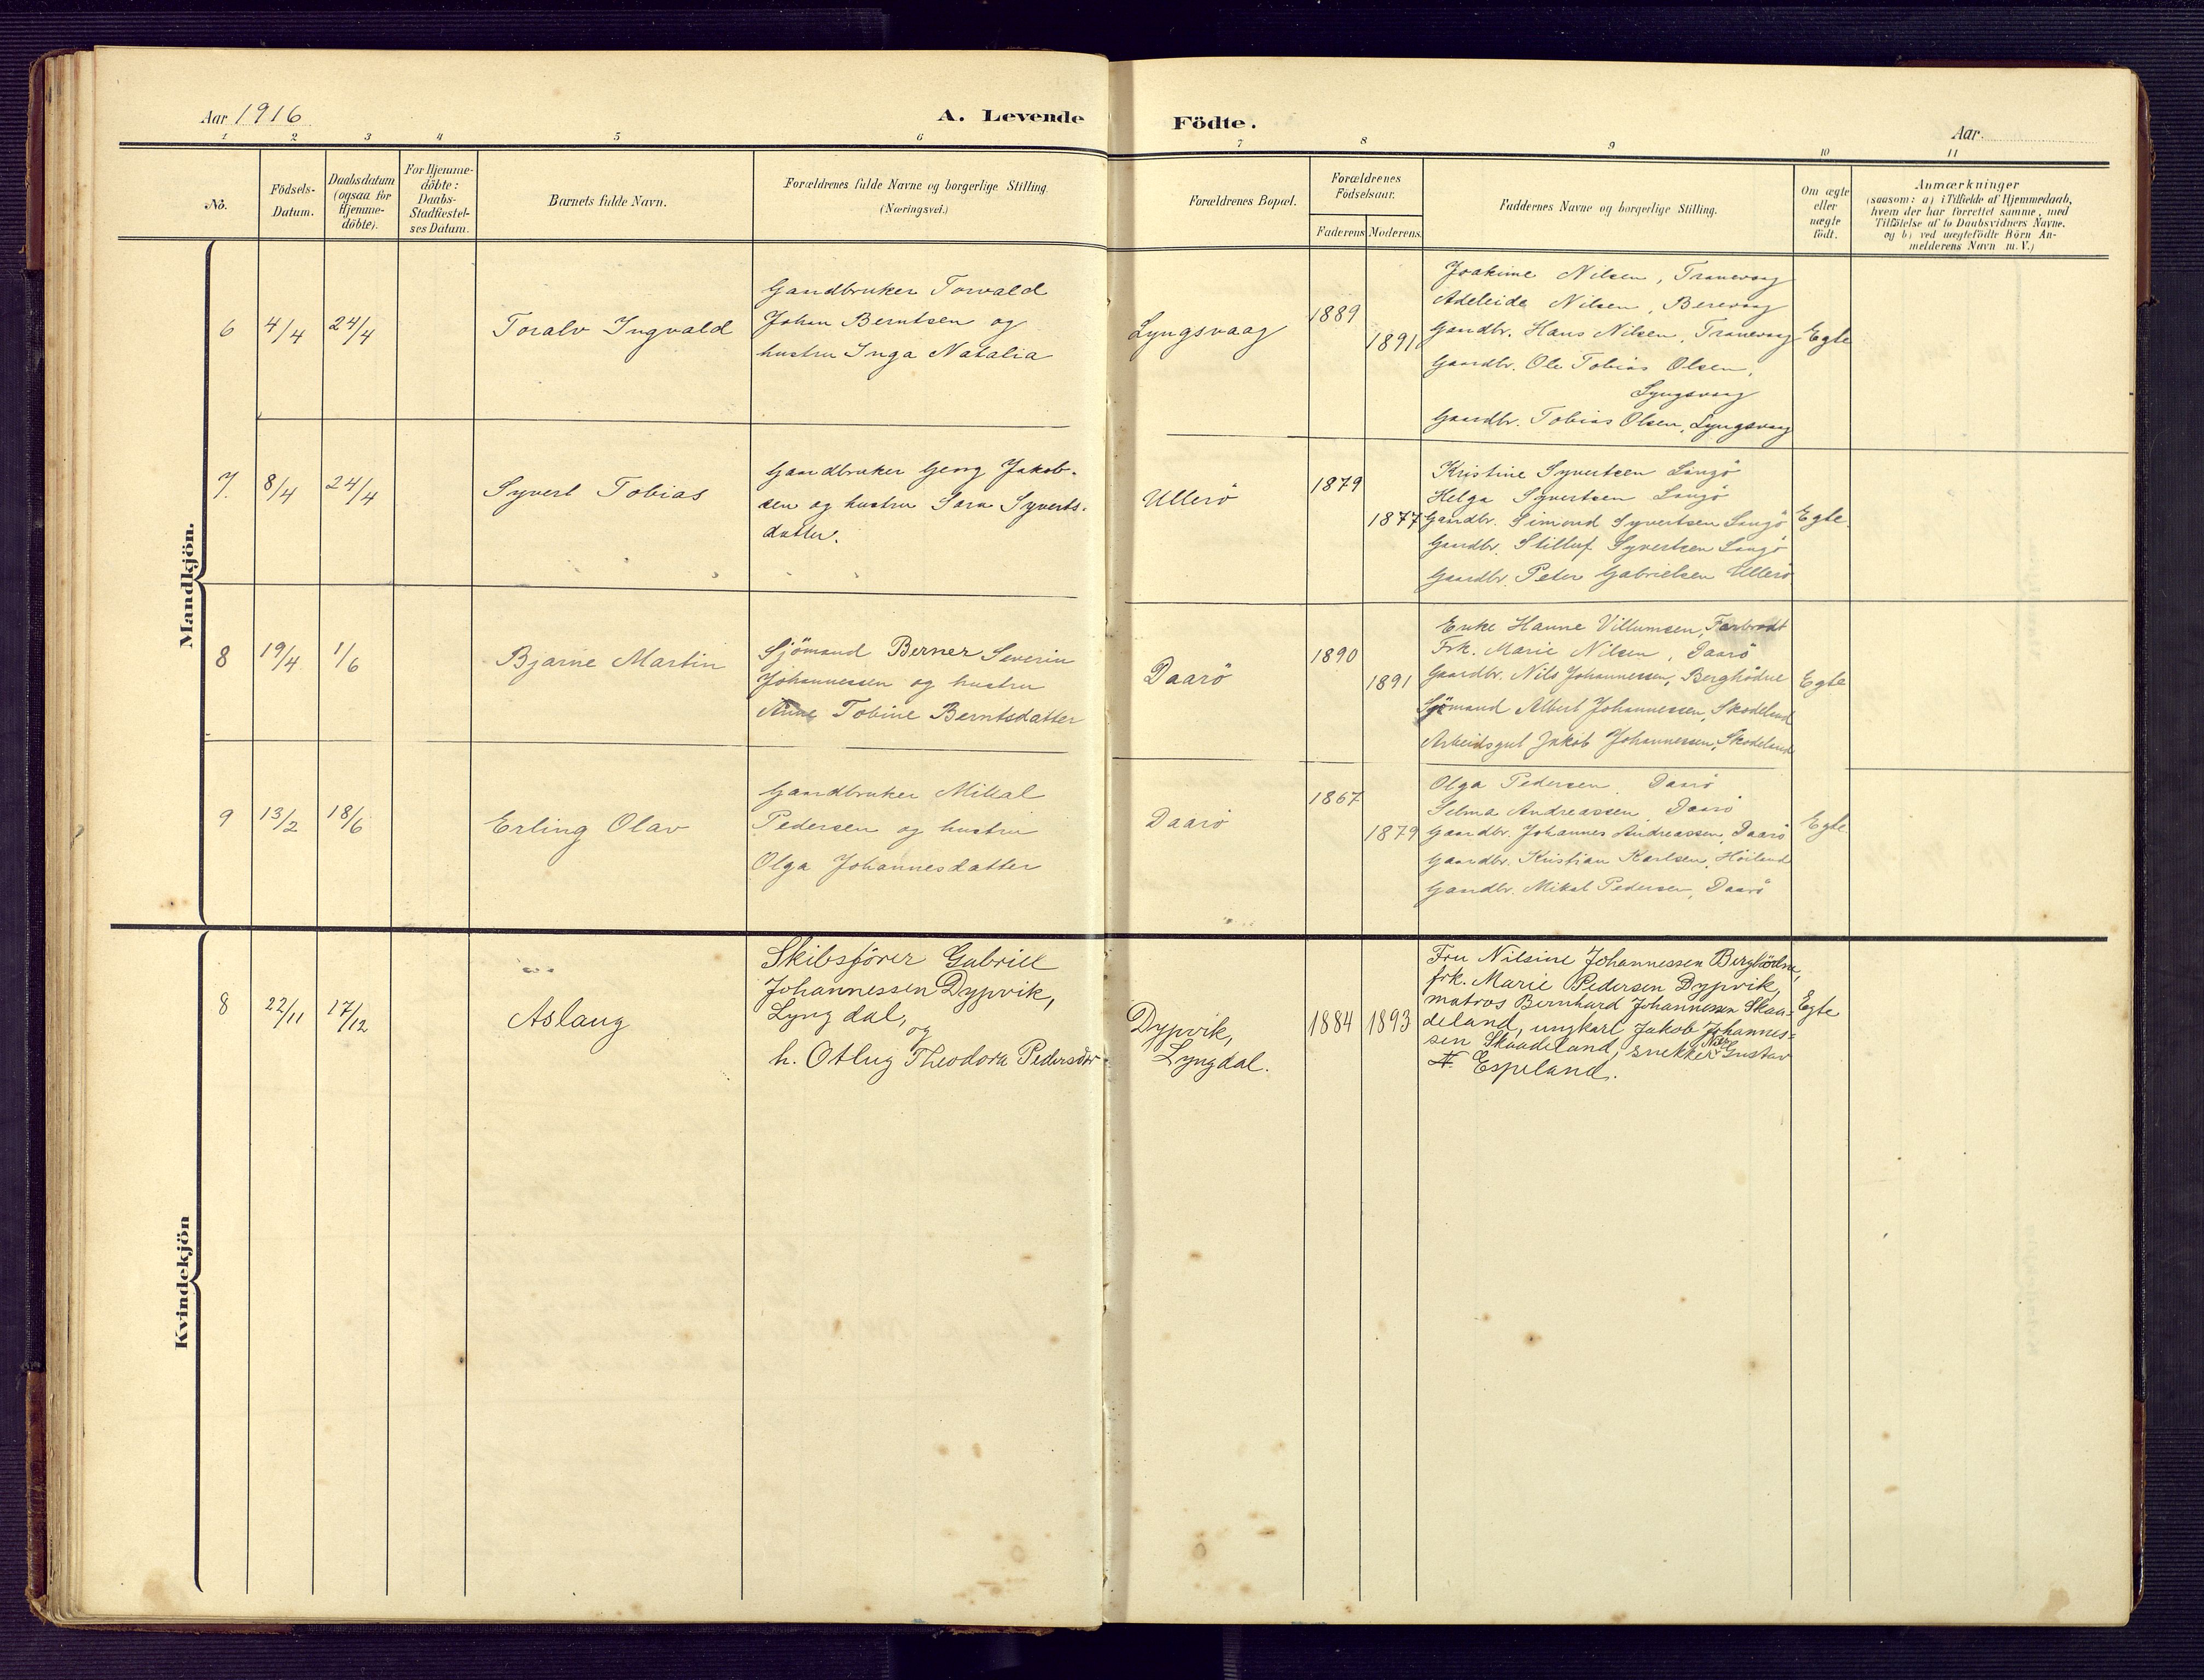 Aar 1916
A. Levende Födte.
Aar
1 2 3 4 5 6 7 8 9 10 11
No.
Födsels-
Datum.
Daabsdatum
(ogsaa for
Hjemme-
döbte).
For Hjemme-
döbte:
Daabs-
Stadfæstel-
ses Datum.
Barnets fulde Navn.
Forældrenes fulde Navne og borgerlige Stilling.
(Næringsvei.)
Forældrenes Bopæl.
Forældrenes
Födselsaar.
Faderens Moderens.
Faddernes Navne og borgerlige Stilling.
Om ægte
eller
uægte
födt.
Anmærkninger
(saasom: a) i Tilfælde af Hjemmedaab,
hvem der har forrettet samme, med
Tilföielse af to Daabsvidners Navne.
og b) ved uægtefödte Börn An-
melderens Navn m. V.)
Mandkjön.
6 4/4 24/4
Toralv Ingvald
Gaardbruker Torvald
Johan Berntsen og
hustru Inga Natalia
Lyngsvaag
1889
1891
Joakime Nilsen, Tranevaag
Adeleide Nilsen, Berevaag
Gaardbr. Hans Nilsen, Tranevaag
Gaardbr. Ole Tobias Olsen,
Lyngsvaag
Gaardbr. Tobias Olsen, Lyngsvaag
Egte
7. 8/4 24/4
Syvert Tobias
Gaardbruker Georg Jakob-
sen og hustru Sara Syverts-
datter.
Ullerö
1879
1877
Kristine Syvertsen Langö
Helga Syvertsen Langö
Gaardbr. Simond Syvertsen Langö
Gaardbr. Stilluf Syvertsen Langö
Gaardbr. Peter Gabrielsen Ullerö
Egte.
8 19/4 1/6
Bjarne Martin
Sjömand Berner Severin
Johannessen og hustru
Anne Tobine Berntsdatter
Daarö
1890
1891
Enke Hanne Villumsen, Farbrodt
Frk. Marie Nilsen, Daarö
Gaardbr. Nils Johannessen, Berghödne
Sjömand Albert Johannessen, Skodeland
Arbeidsgut Jakob Johannessen, Skodeland
Egte
9 13/2 18/6
Erling Olav
Gaardbruker Mikal
Pedersen og hustru
Olga Johannesdatter
Daarö
1867
1879
Olga Pedersen, Daarö
Selma Andreassen, Daarö
Gaardbr. Johannes Andreassen, Daarö
Gaardbr. Kristian Karlsen, Höiland
Gaardbr. Mikal Pedersen, Daarö
Egte.
Kvindekjön
8 22/11 17/12
Aslaug
Skibsförer Gabriel
Johannessen Dypvik,
Lyngdal,
og
h. Otlug Theodora Pedersdtr
Dypvik,
Lyngdal.
1884 1893
Fru Nilsine Johannessen Berghödne,
frk. Marie Pedersen Dypvik,
matros Bernhard Johannessen Skaa-
deland, ungkarl Jakob Johannes-
sen Skaadeland, snekker Gustav
Espeland.
Egte